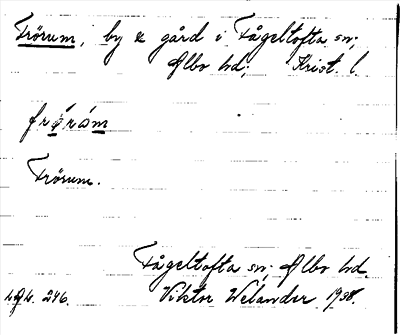 Frörum, by & gård i Fågeltofta sn;
Albo hd; Krist. l.
Frörum.
Fågeltofta sn; Albo hd.
Viktor Welander 1938.